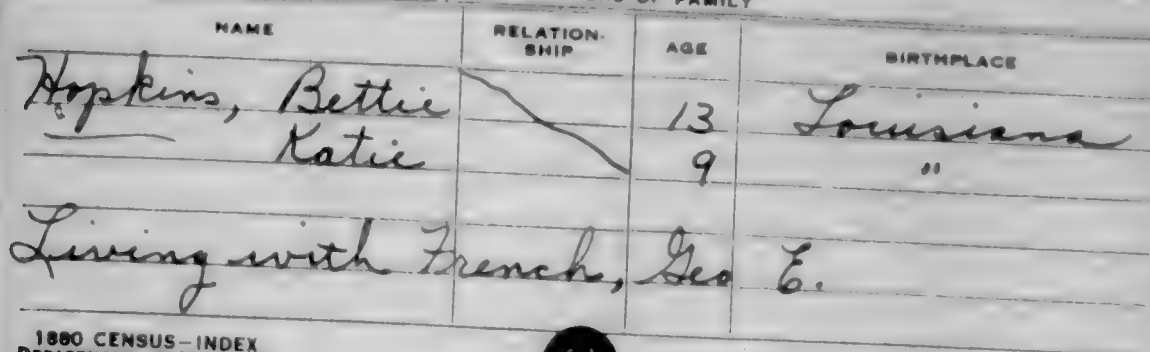 OF FAMILY
NAME RELATION-SHIP AGE BIRTHPLACE
Hopkins, Bettie 13 Louisiana
Katie 9 "
Living with French, Geo E.
1880 CENSUS-INDEX